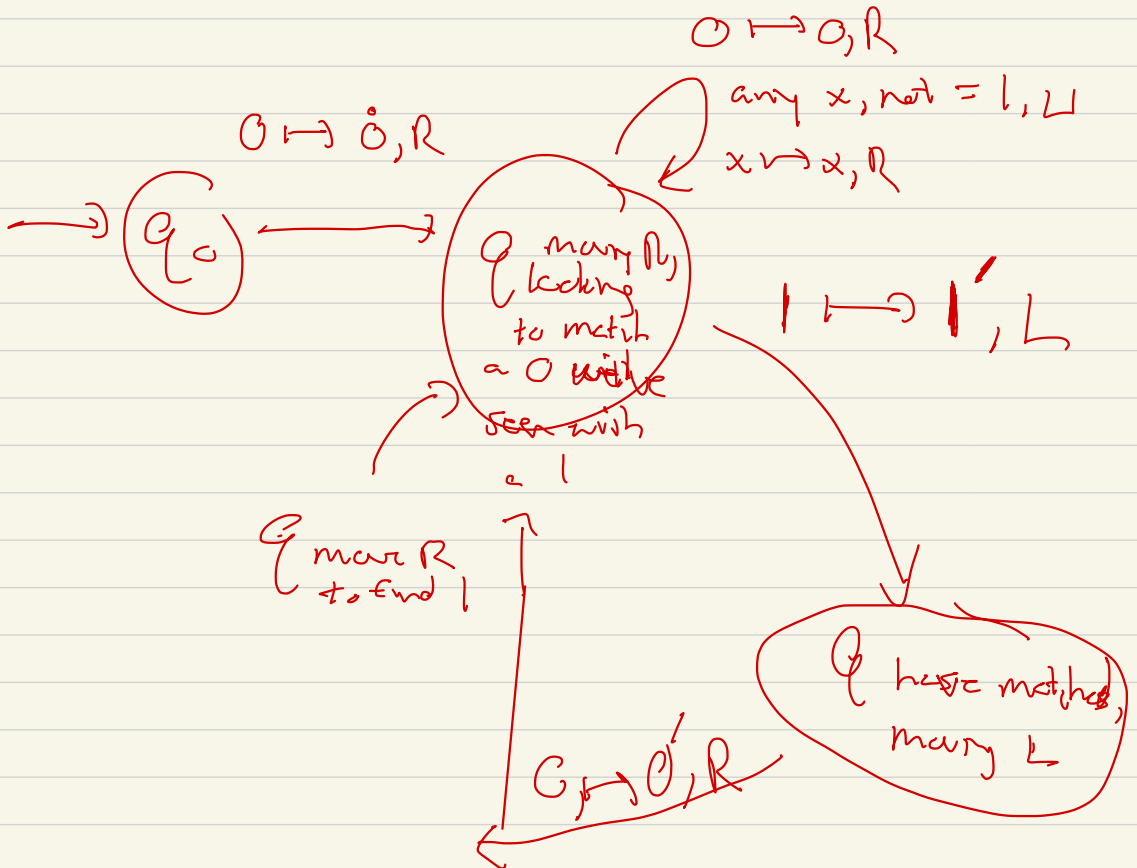 0 ↦ 0, R
any x, not = 1, ⊔
x ↦ x, R
0 ↦ 0̇, R
q₀
q moving R,
looking
to match
a 0 we've
seen with
a 1
1 ↦ 1′, L
q move R
to find 1
q have matched,
moving L
0 ↦ 0′, R